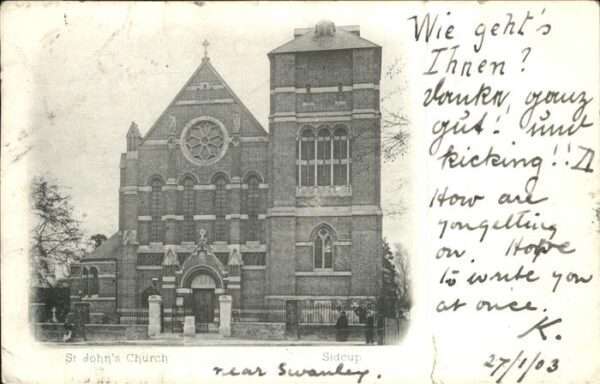 Wie geht's
Ihnen?
Danke, ganz
gut! und
kicking!!
How are
you getting
on. Hope
to write you
at once.
K.
27/1/03
St John's Church Sidcup
near Swanley.